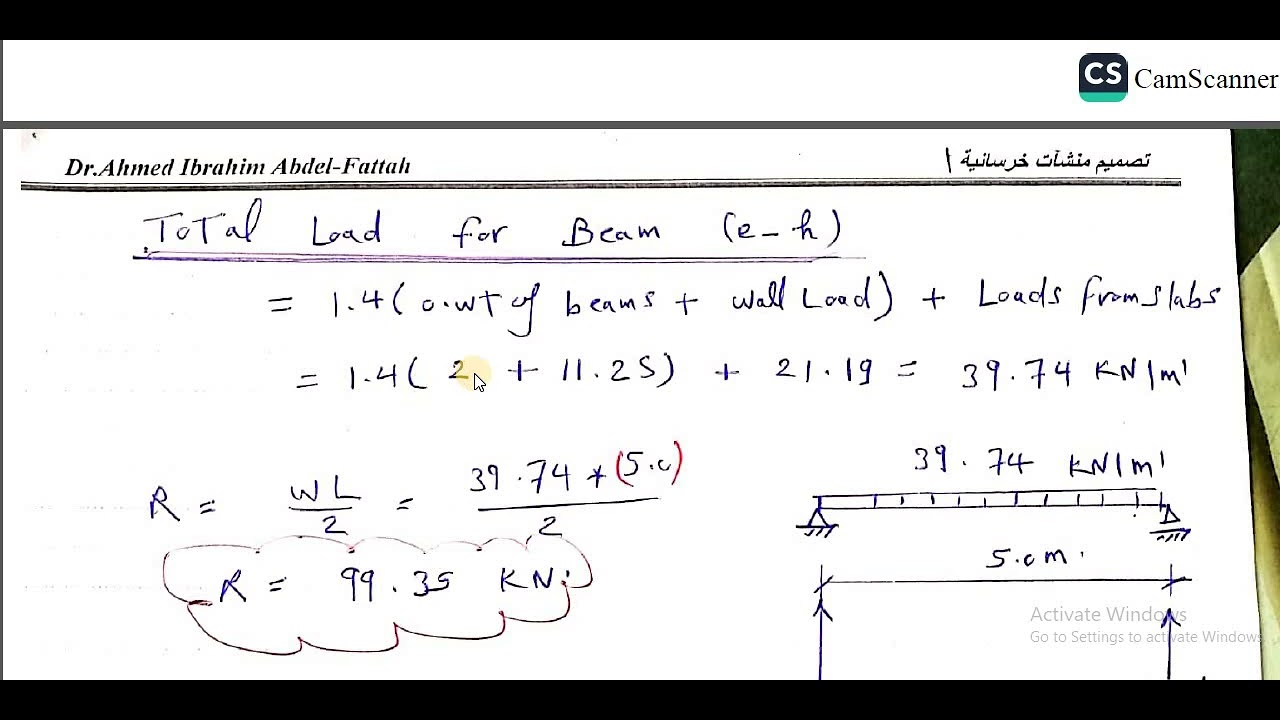 CS CamScanner
Dr.Ahmed Ibrahim Abdel-Fattah
تصميم منشآت خرسانية 1
Total Load for Beam (e-h)
= 1.4( o.wt of beams + wall Load) + Loads from slabs
= 1.4( 2 + 11.25) + 21.19 = 39.74 KN/m'
R = WL/2 = 39.74 * (5.0)/2
39.74 KN/m'
R = 99.35 KN.
5.0m.
Activate Windows
Go to Settings to activate Windows.